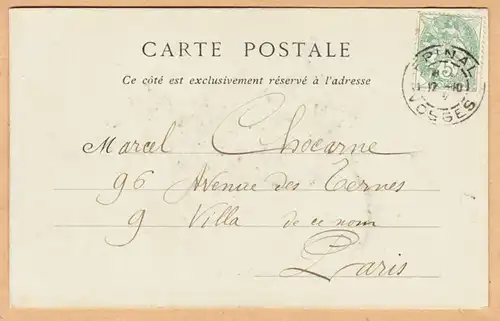 CARTE POSTALE
Ce côté est exclusivement réservé à l'adresse
EPINAL
17 10
VOSGES
5
Marcel Chocarne
96 Avenue des Ternes
9 Villa de ce nom
Paris